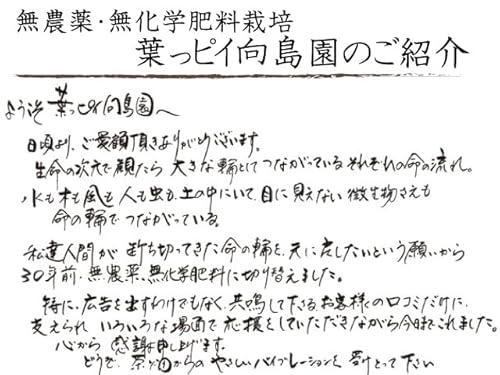 無農薬・無化学肥料栽培
葉っピイ向島園のご紹介
ようこそ 葉っピイ向島園へ
日頃より、ご愛顧頂きありがとうございます。
生命の次元で観たら 大きな輪としてつながっている それぞれの命の流れ。
水も木も風も人も虫も、土の中にいて、目に見えない微生物さえも
命の輪で つながっている。
私達人間が 断ち切ってきた命の輪を、天に戻したいという願いから
30年前、無農薬、無化学肥料に切り替えました。
特に、広告を出すわけでもなく、共鳴して下さるお客様の口コミだけに
支えられ いろいろな場面で 応援をしていただきながら今日まできれました。
心から 感謝申し上げます。
どうぞ、茶の園からの やさしいバイブレーションを 受けとって下さい